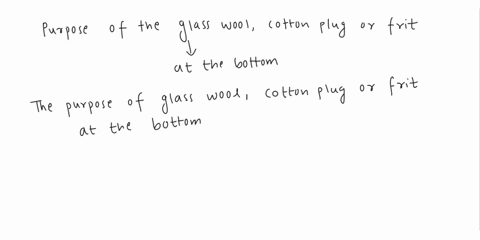 Purpose of the glass wool, cotton plug or frit
at the bottom
The purpose of glass wool, cotton plug or frit
at the bottom